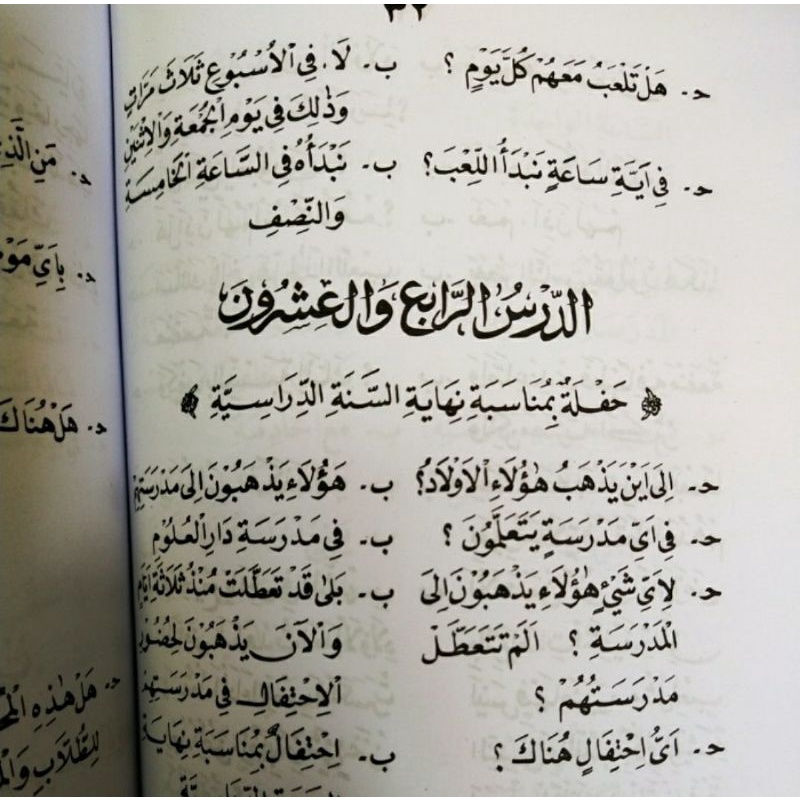 ٣٢
ح- هَلْ تَلْعَبُ مَعَهُمْ كُلَّ يَوْمٍ ؟ ب- لَا، فِي الْأُسْبُوْعِ ثَلَاثَ مَرَّاتٍ
وَذٰلِكَ فِي يَوْمِ الْجُمُعَةِ وَالْاِثْنَيْنِ
ح- فِي اَيَّةِ سَاعَةٍ نَبْدَأُ اللَّعِبَ؟ ب- نَبْدَأُهُ فِي السَّاعَةِ الْخَامِسَةِ
وَالنِّصْفِ
الدَّرْسُ الرَّابِعُ وَالْعِشْرُونَ
حَفْلَةٌ بِمُنَاسَبَةِ نِهَايَةِ السَّنَةِ الدِّرَاسِيَّةِ
ح- اِلَى اَيْنَ يَذْهَبُ هٰؤُلَاءِ الْاَوْلَادُ؟ ب- هَؤُلَاءِ يَذْهَبُوْنَ اِلَى مَدْرَسَتِهِمْ
ح- فِي اَيِّ مَدْرَسَةٍ يَتَعَلَّمُوْنَ ؟ ب- فِي مَدْرَسَةِ دَارِ الْعُلُوْمِ
ح- لِاَيِّ شَيْءٍ هٰؤُلَاءِ يَذْهَبُوْنَ اِلَى ب- بَلٰى قَدْ تَعَطَّلَتْ مُنْذُ ثَلَاثَةِ اَيَّامٍ
الْمَدْرَسَةِ ؟ اَلَمْ تَتَعَطَّلْ وَالْآنَ يَذْهَبُوْنَ لِحُضُوْرِ
مَدْرَسَتُهُمْ ؟ الْاِحْتِفَالِ فِي مَدْرَسَتِهِمْ
ح- اَيُّ احْتِفَالٍ هُنَاكَ ؟ ب- اِحْتِفَالٌ بِمُنَاسَبَةِ نِهَايَةِ
ح- مَنِ الَّذِ
ح- بِاَيِّ مَوْ
ح- هَلْ هُنَاكَ
ح- هَلْ هٰذِهِ
لِلطُّلَّابِ